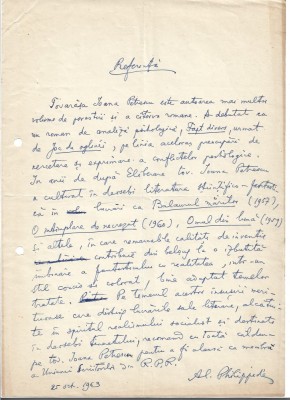 Referință
Tovarășa Ioana Petrescu este autoarea mai multor
volume de povestiri și a câtorva romane. A debutat cu
un roman de analiză psihologică, Fapt divers, urmat
de Joc de oglinzi, pe linia acelorași preocupări de
cercetare și exprimare a conflictelor
În anii de după Eliberare tov. Ioana Petrescu
a cultivat în deosebi literatura științifico-fantasti-
că în lucrări ca (1957),
O întâmplare de necrezut (1960), Omul din lună (1959)
și altele, în care remarcabile calități de invenție
contribuie din belșug la o
îmbinare a fantasticului cu realitatea, într-un
stil concis și colorat, bine adaptat temelor
tratate. Pe temeiul acestor însușiri meri-
tuoase care disting lucrările sale literare, alcătu-
ite în spiritul realismului socialist și destinate
în deosebi tineretului, recomand cu toată căldura
pe tov. Ioana Petrescu pentru a fi aleasă ca membră
a Uniunii Scriitorilor din R.P.R.
25 oct. 1963
Al. Philippide